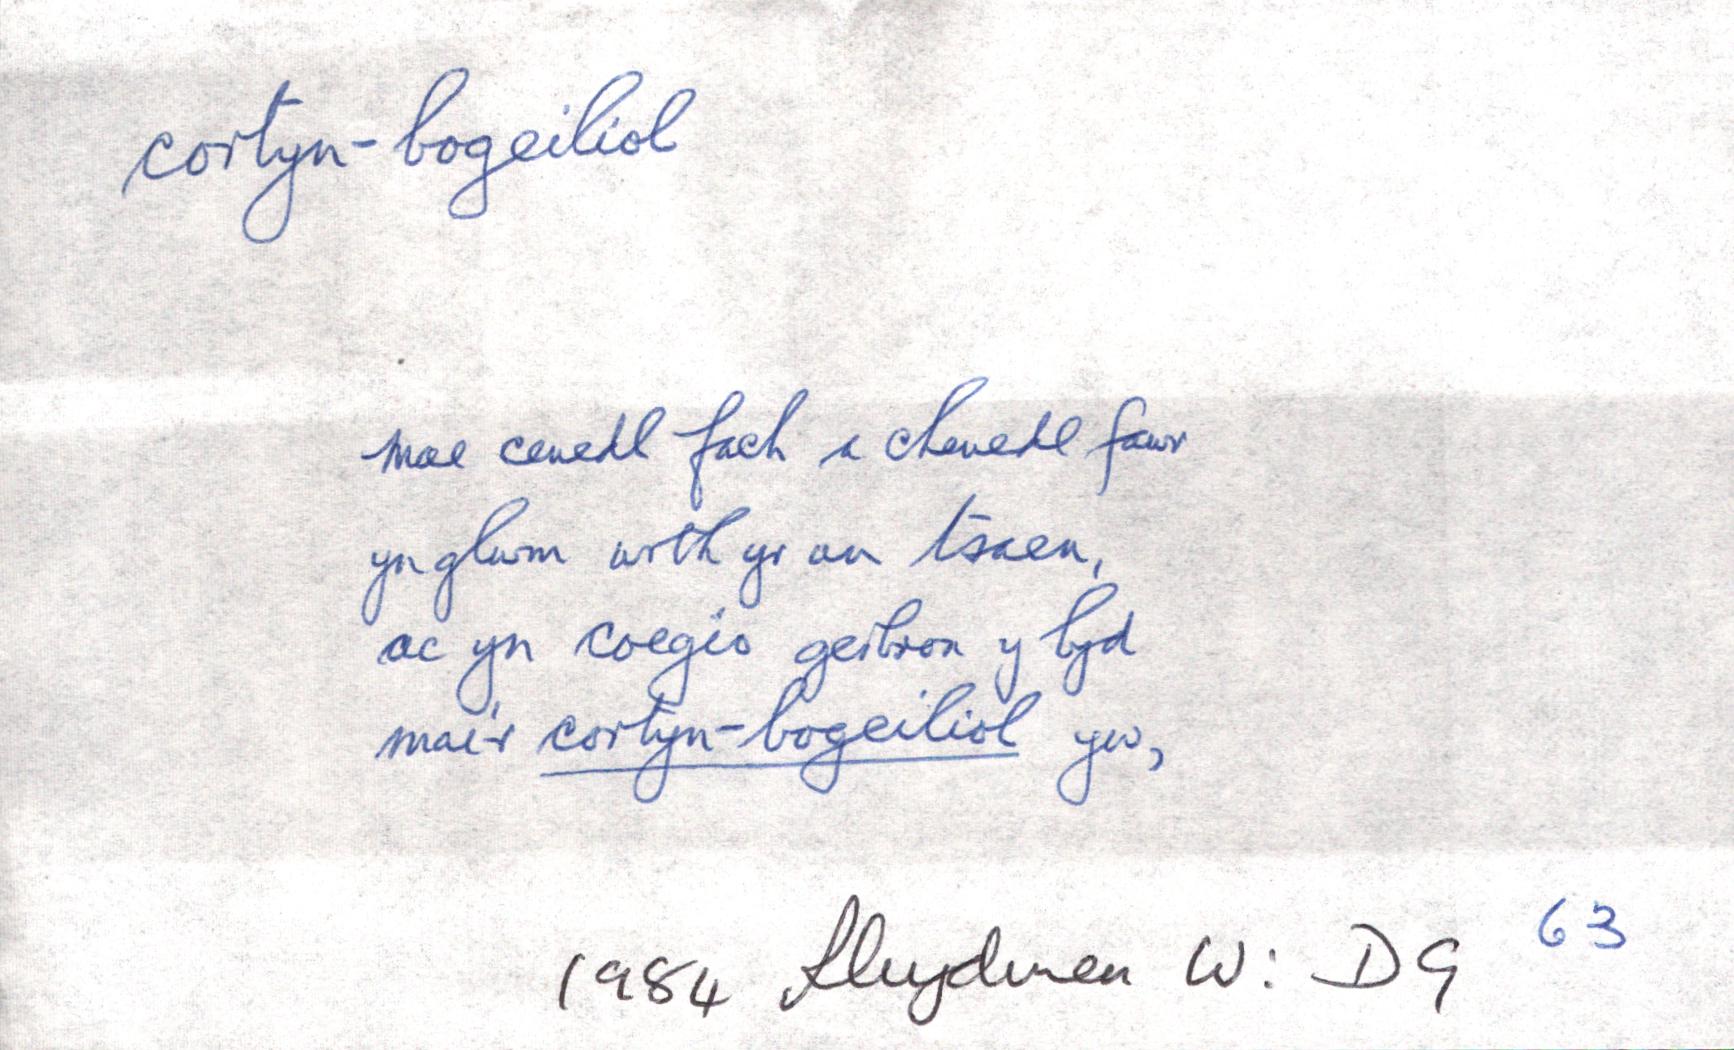 cortyn-bogeiliol
mae cenedl fach a chenedl fawr
ynglwm wrth yr un tsaen,
ac yn coegio geibron y byd
mai'r cortyn-bogeiliol yw,
1984 Llwydwen W: DG 63